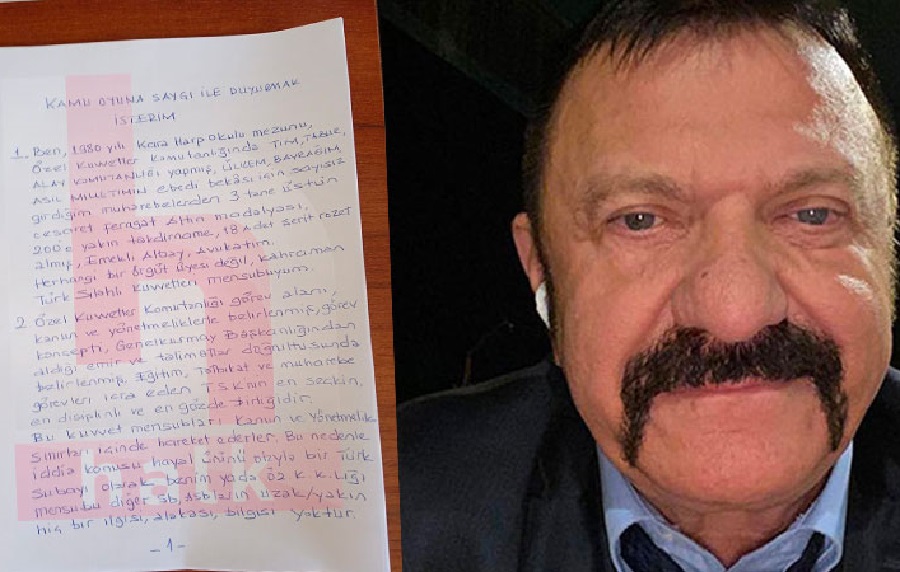 KAMU OYUNA SAYGI İLE DUYURMAK
İSTERİM
1. Ben, 1980 yılı Kara Harp Okulu mezunu,
Özel Kuvvetler Komutanlığında TİM, TABUR,
ALAY KOMUTANLIĞI yapmış, ÜLKEM, BAYRAĞIM,
ASİL MİLLETİMİN ebedi bekâsı için sayısız
girdiğim muharebelerden 3 tane üstün
cesaret feragat Altın madalyası,
200'e yakın takdirname, 18 adet şerit rozet
almış, Emekli Albay, Avukatım.
Herhangi bir örgüt üyesi değil, kahraman
Türk Silahlı Kuvvetleri mensubuyum.
2. Özel Kuvvetler Komutanlığı görev alanı,
kanun ve yönetmeliklerle belirlenmiş, görev
konsepti, Genelkurmay Başkanlığından
aldığı emir ve talimatlar doğrultusunda
belirlenmiş, Eğitim, Tatbikat ve muharebe
görevleri icra eden TSK'nın en seçkin,
en disiplinli ve en gözde birliğidir.
Bu kuvvet mensubları, kanun ve yönetmelik
sınırları içinde hareket ederler. Bu nedenle
iddia konusu hayal ürünü olayla bir Türk
Subayı olarak benim yada Öz K.K.lığı
mensubu diğer sb, Asb.ların uzak/yakın
hiç bir ilgisi, alakası, bilgisi yoktur.
-1-
halk